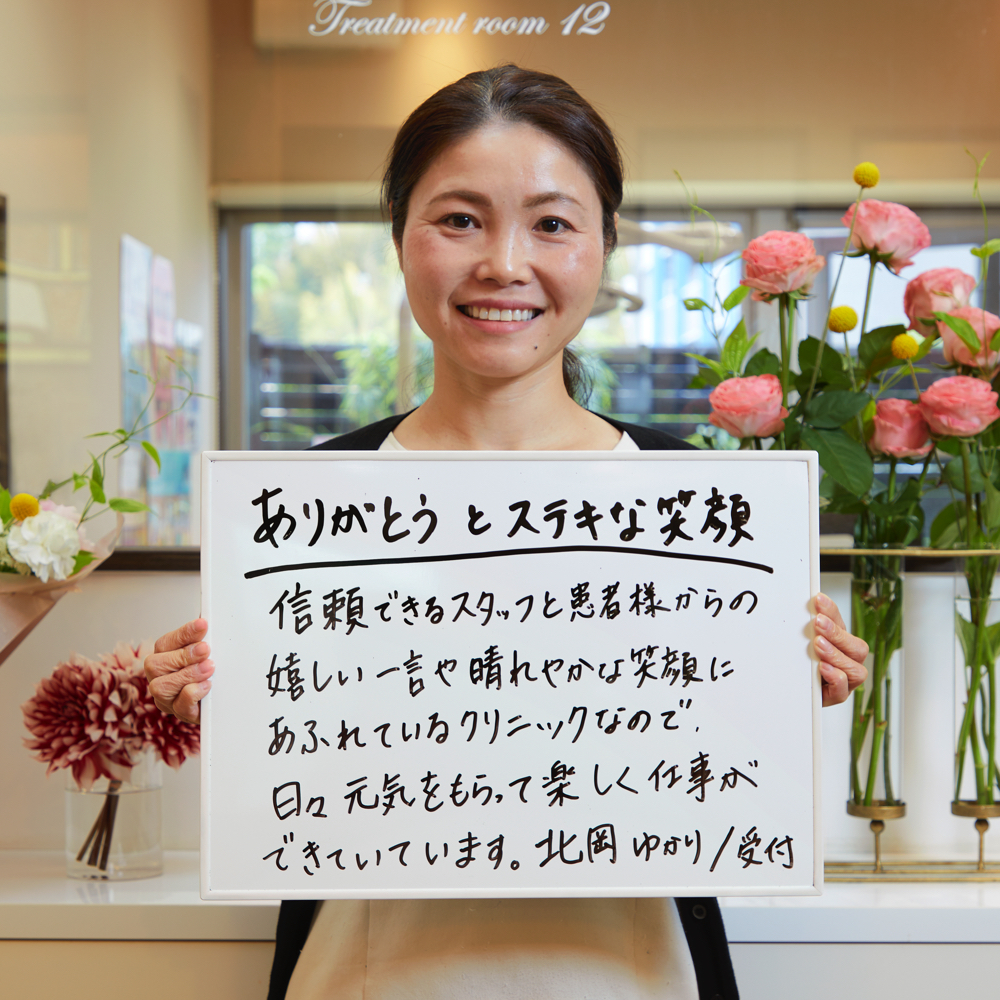 Treatment room 12
ありがとうとステキな笑顔
信頼できるスタッフと患者様からの
嬉しい一言や晴れやかな笑顔に
あふれているクリニックなので、
日々元気をもらって楽しく仕事が
できていています。北岡ゆかり/受付